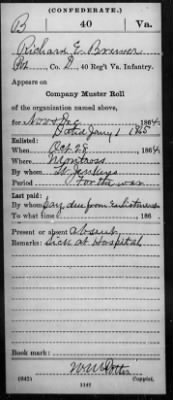 (CONFEDERATE.)
B 40 Va.
Richard E. Brewer
Pvt, Co. D, 40 Reg't Va. Infantry.
Appears on
Company Muster Roll
of the organization named above,
for Nov & Dec 1864.
Dated Jany 1 1865
Enlisted:
When Oct 28, 1864.
Where Montross
By whom Lt Jenkins
Period For the war
Last paid:
By whom pay due from Enlistment
To what time , 186 .
Present or absent Absent
Remarks: Sick at Hospital
Book mark:
(642) Copyist.